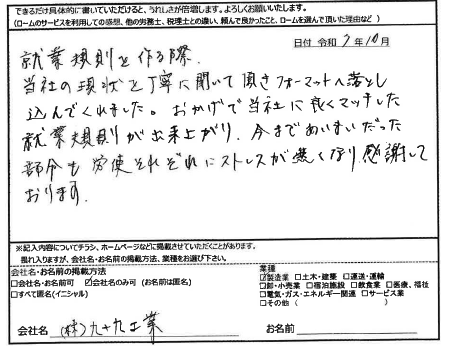 できるだけ具体的に書いていただけると、うれしさが倍増します。よろしくお願いいたします。
(ロームのサービスを利用しての感想、他の労務士、税理士との違い、頼んで良かったこと、ロームを選んで頂いた理由など)
日付 令和 7年 10月
就業規則を作る際、
当社の現状を丁寧に聞いて頂きフォーマットへ落とし
込んでくれました。おかげで当社に良くマッチした
就業規則が出来上がり、今まであいまいだった
部分も労使それぞれにストレスが無くなり感謝して
おります。
※記入内容についてチラシ、ホームページなどに掲載させていただくことがあります。
畏れ入りますが、会社名・お名前の掲載方法、業種をお選び下さい。
会社名・お名前の掲載方法
□会社名・お名前可 ☑会社名のみ可 (お名前は匿名)
□すべて匿名(イニシャル)
業種
☑製造業 □土木・建築 □運送・運輸
□卸・小売業 □宿泊施設 □飲食業 □医療、福祉
□電気・ガス・エネルギー関連 □サービス業
□その他 ( )
会社名 (株)九十九工業
お名前